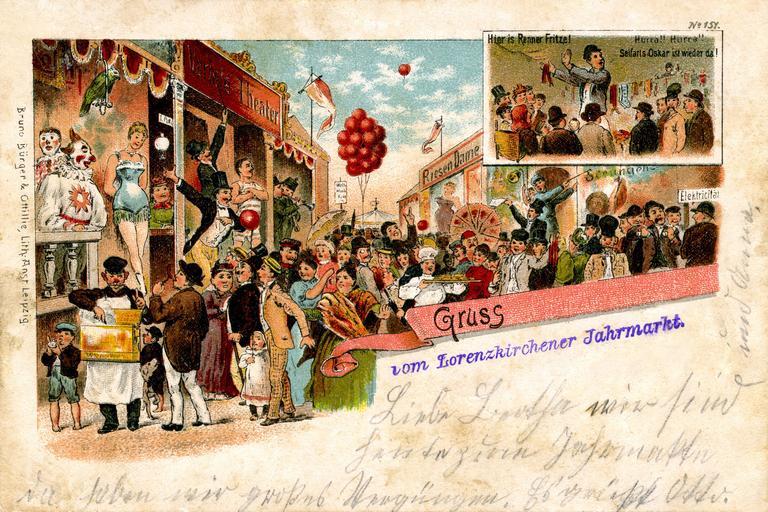 No 151.
Hier is Renner Fritze!
Hurra!! Hurra!!
Seifarts Oskar ist wieder da!
Variete Theater
Riesen Dame
Electricität
Bruno Bürger & Ottilie, Lith. Anst. Leipzig.
Gruss
vom Lorenzkirchener Jahrmarkt.
Liebe Bertha wir sind
heute zum Jahrmarkte
da haben wir großes Vergnügen. Es grüßt Otto.
und Emma.